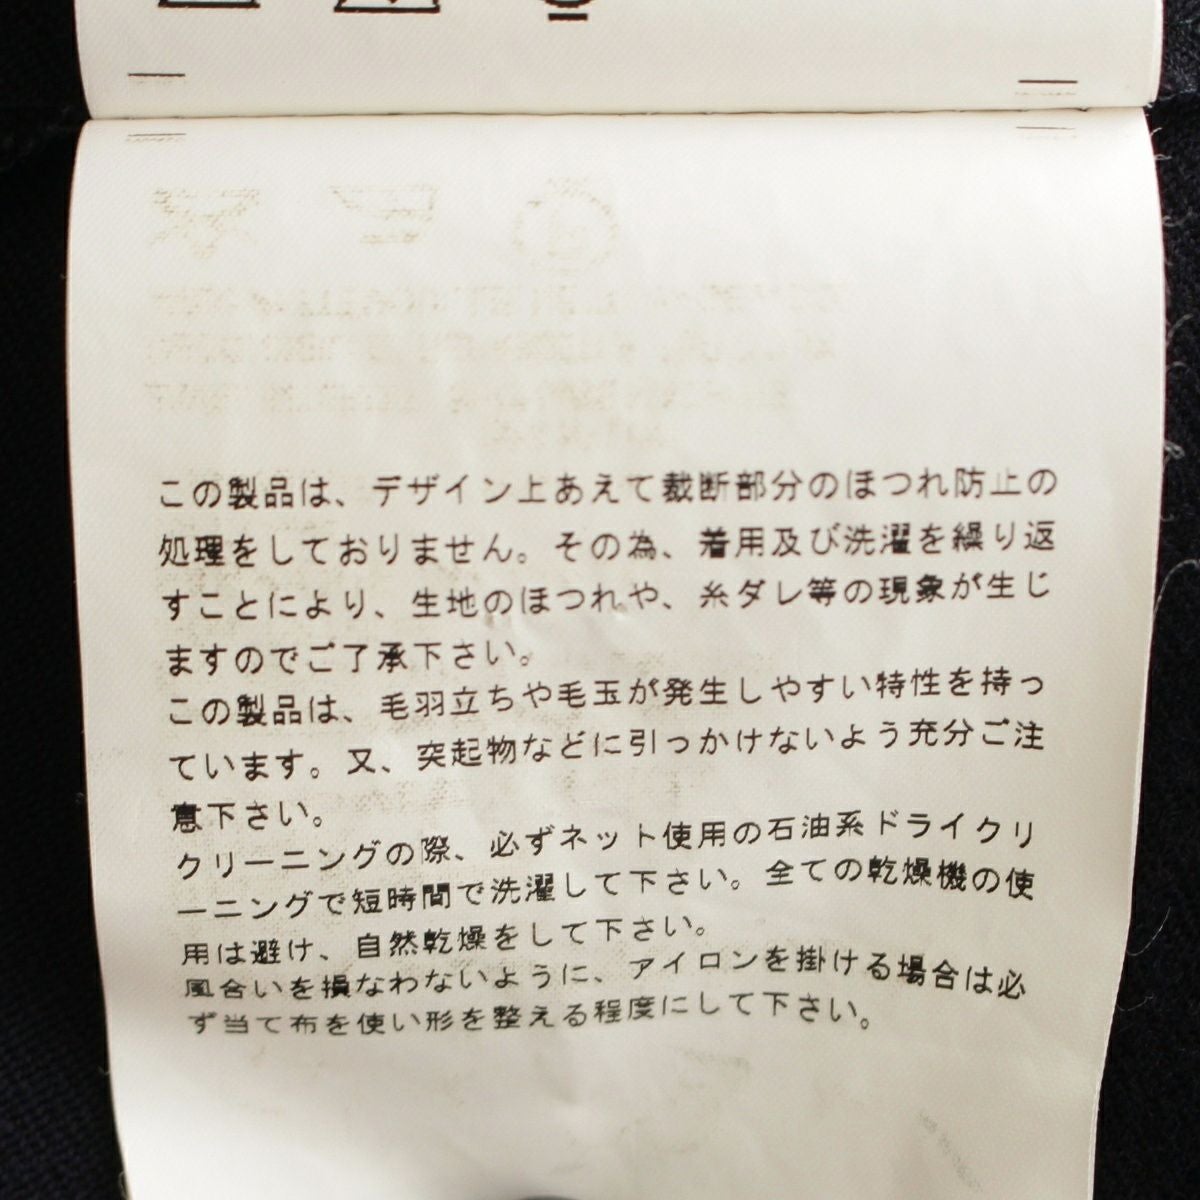 この製品は、デザイン上あえて裁断部分のほつれ防止の
処理をしておりません。その為、着用及び洗濯を繰り返
すことにより、生地のほつれや、糸ダレ等の現象が生じ
ますのでご了承下さい。
この製品は、毛羽立ちや毛玉が発生しやすい特性を持っ
ています。又、突起物などに引っかけないよう充分ご注
意下さい。
クリーニングの際、必ずネット使用の石油系ドライクリ
ーニングで短時間で洗濯して下さい。全ての乾燥機の使
用は避け、自然乾燥をして下さい。
風合いを損なわないように、アイロンを掛ける場合は必
ず当て布を使い形を整える程度にして下さい。